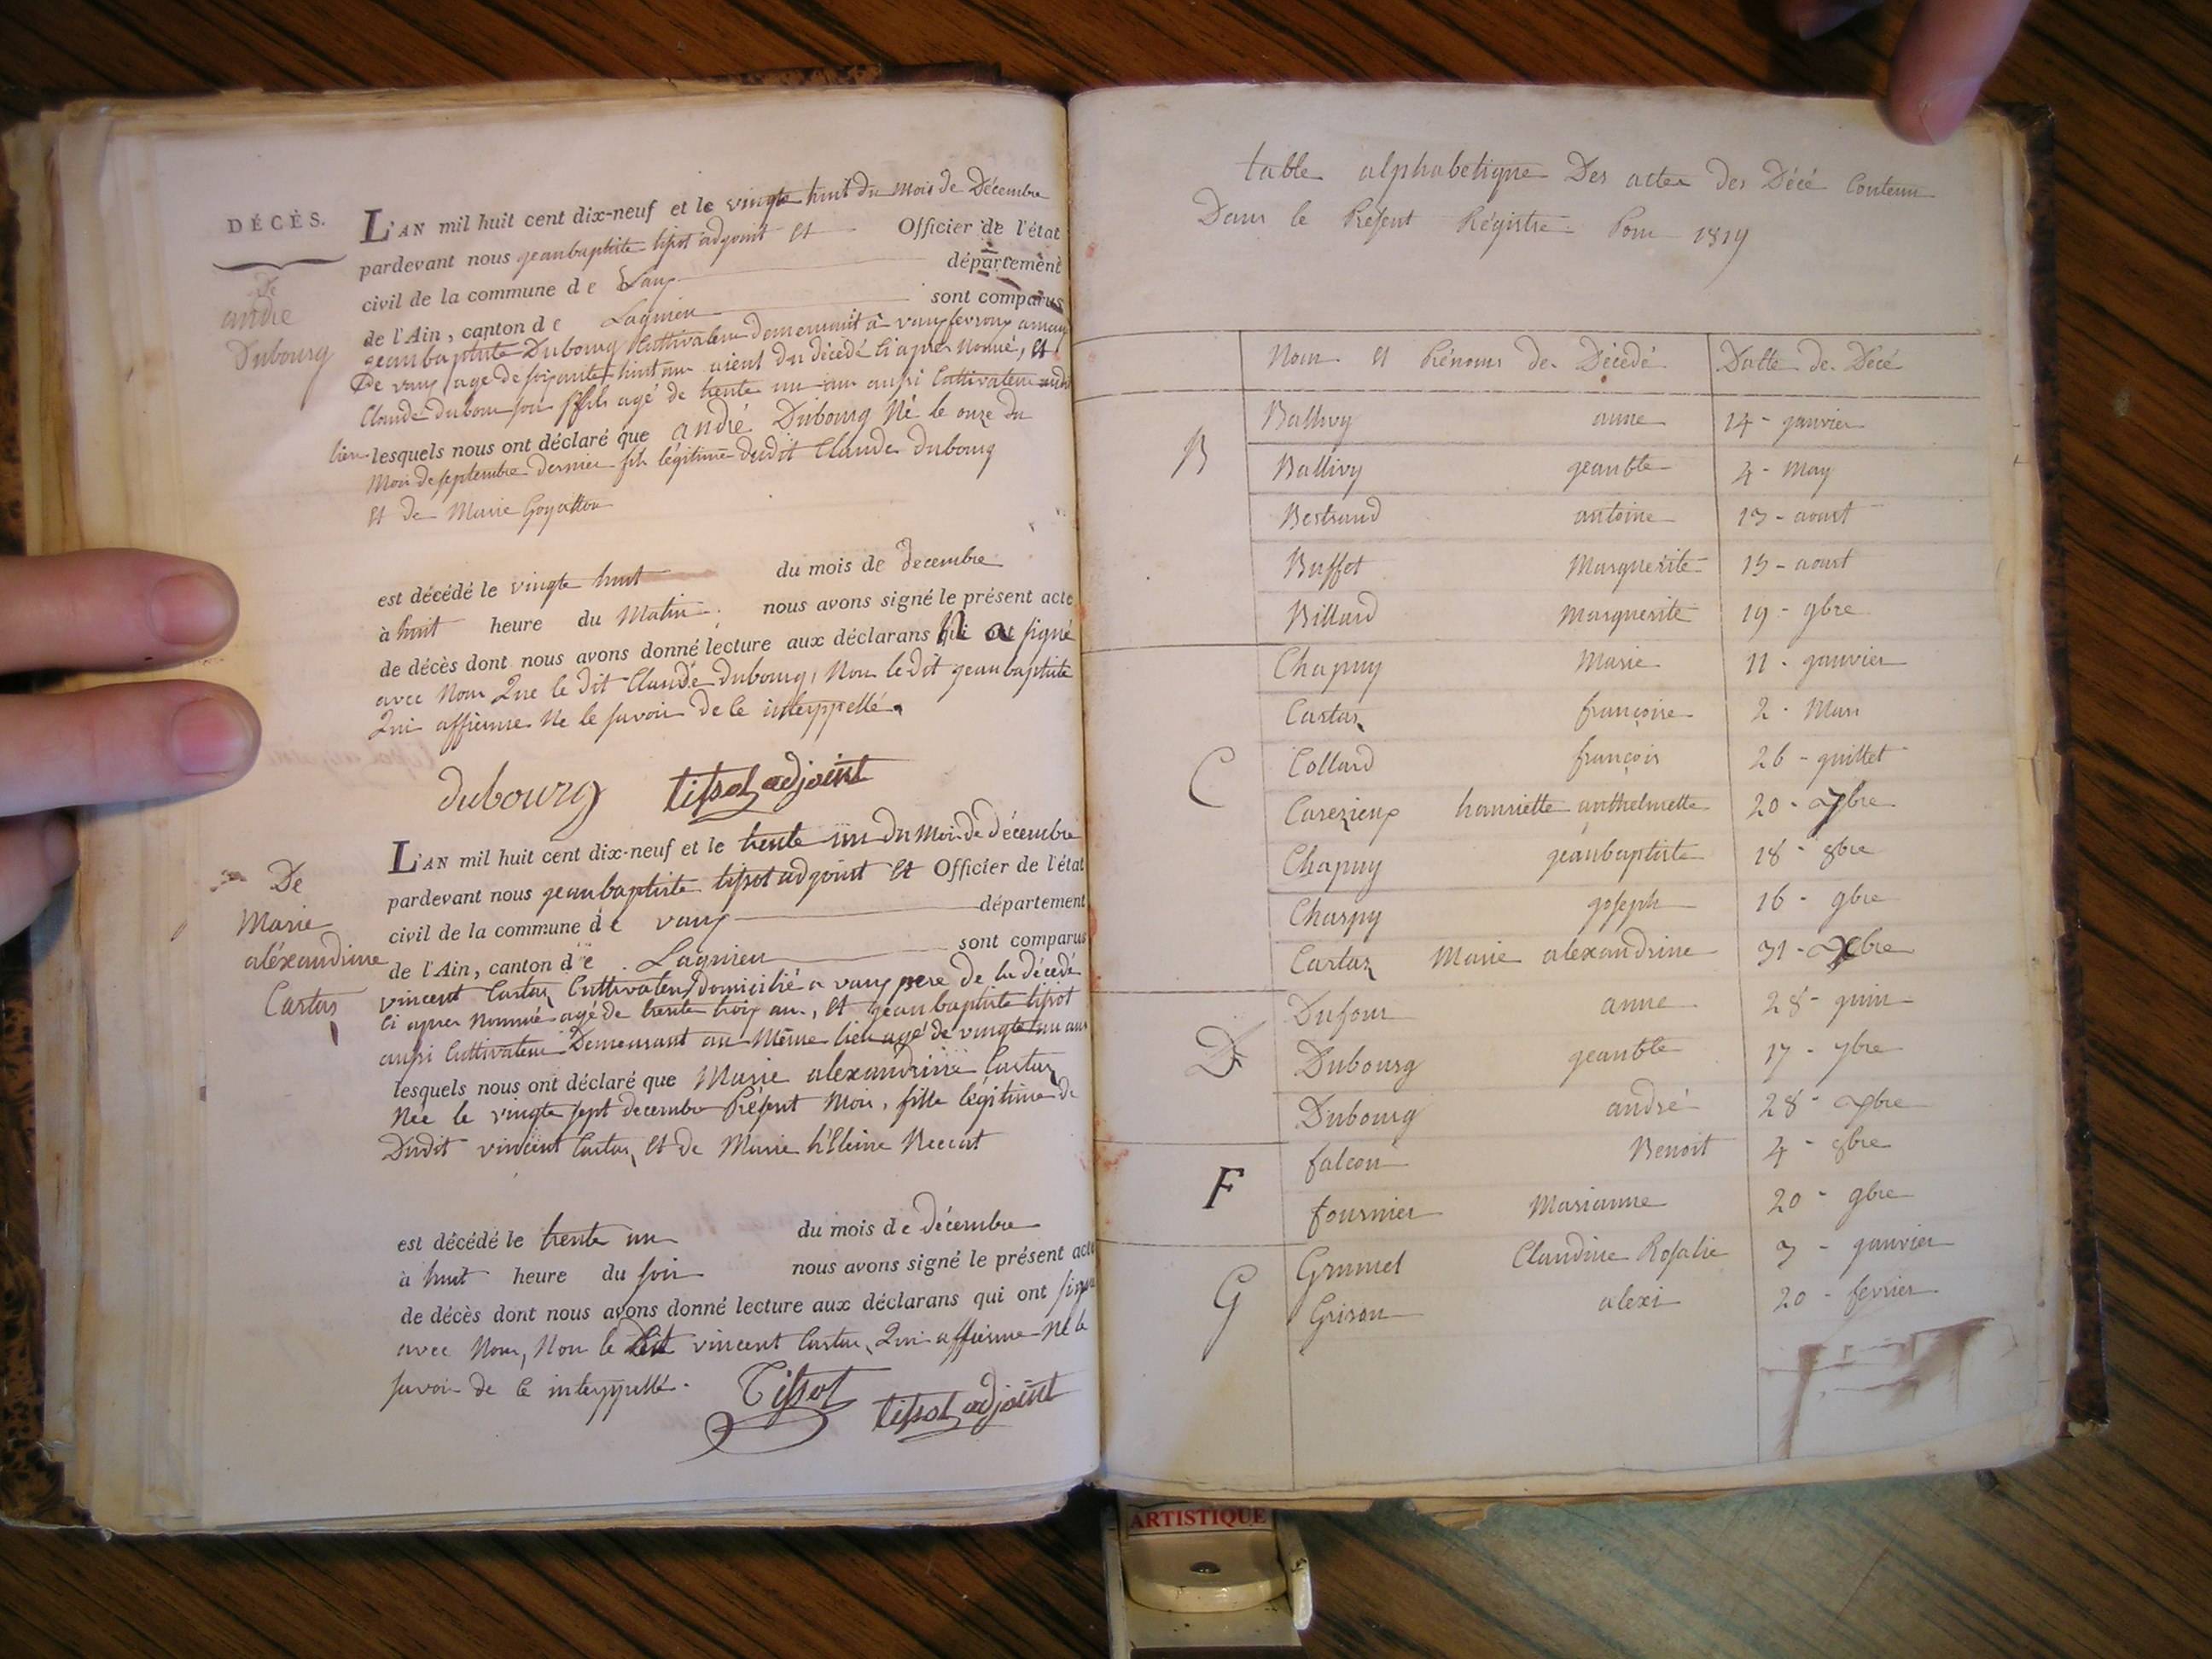 DÉCÈS.
De
andré
Dubourg
L'AN mil huit cent dix-neuf et le vingte huit du mois de Décembre
pardevant nous geanbaptiste tisot adgoint et Officier de l'état
civil de la commune de Vaux département
de l'Ain, canton de Lagnieu sont comparus
geanbaptiste Dubourg Cultivateur demeurant à vaux
De vaux agé de soixante huit ans aieul du décédé ci apres nommé, et
Claude dubour son fils agé de trente un an aussi Cultivateur audit
lieu lesquels nous ont déclaré que andré Dubourg Né le onze du
Mois de septembre dernier fils légitime dudit Claude dubourg
et de Marie Goyatton
est décédé le vingte huit du mois de decembre
à huit heure du Matin nous avons signé le présent acte
de décès dont nous avons donné lecture aux déclarans qui a signé
avec Nous Que le dit Claude dubourg, Non le dit geanbaptiste
Qui affirme Ne le savoir de ce interppellé.
dubourg tissot adjoint
De
Marie
aléxandrine
Cartas
L'AN mil huit cent dix-neuf et le trente un du Mois de décembre
pardevant nous geanbaptiste tisot adgoint et Officier de l'état
civil de la commune de vaux département
de l'Ain, canton de Lagnieu sont comparus
vincent Cartas Cultivateur domicilié a vaux pere de la décédé
ci apres nommé agé de trente troix ans, et geanbaptiste tisot
aussi Cultivateur Demeurant au Même lieu agé de vingte un ans
lesquels nous ont déclaré que Marie alexandrine Cartas
Née le vingte sept decembre Présent Mois, fille légitime de
Dudit vincent Cartas et de Marie h'Eleine
est décédé le trente un du mois de décembre
à huit heure du soir nous avons signé le présent acte
de décès dont nous avons donné lecture aux déclarans qui ont signé
avec Nous, Non le Dit vincent Cartas Qui affirme Ne le
savoir de ce interppellé.
Tissot tissot adjoint
table alphabetique Des actes des Décé Contenu
Dans le Présent Régistre Pour 1819
Nom et Prénoms de Décédé Datte de Décé
B
Ballivy anne 14 - ganvier
Ballivy geanbte 4 - may
Bertrand antoine 13 - aoust
Buffet Marguerite 15 - aoust
Billard Marguerite 19 - 9bre
C
Chapuy Marie 11 - ganvier
Cartas françoise 2 - Mars
Collard françois 26 - guillet
Carezieux hanriette anthelmette 20 - 7bre
Chapuy geanbaptiste 18 - 8bre
Charpy goseph 16 - 9bre
Cartas Marie alexandrine 31 - Xbre
D
Dufour anne 28 - guin
Dubourg geanbte 17 - 7bre
Dubourg andré 28 - Xbre
F
falcon Benoit 4 - 8bre
fournier Marianne 20 - 9bre
G
Grumel Claudine Rosalie 3 - ganvier
Grison alexi 20 - fevrier
ARTISTIQUE